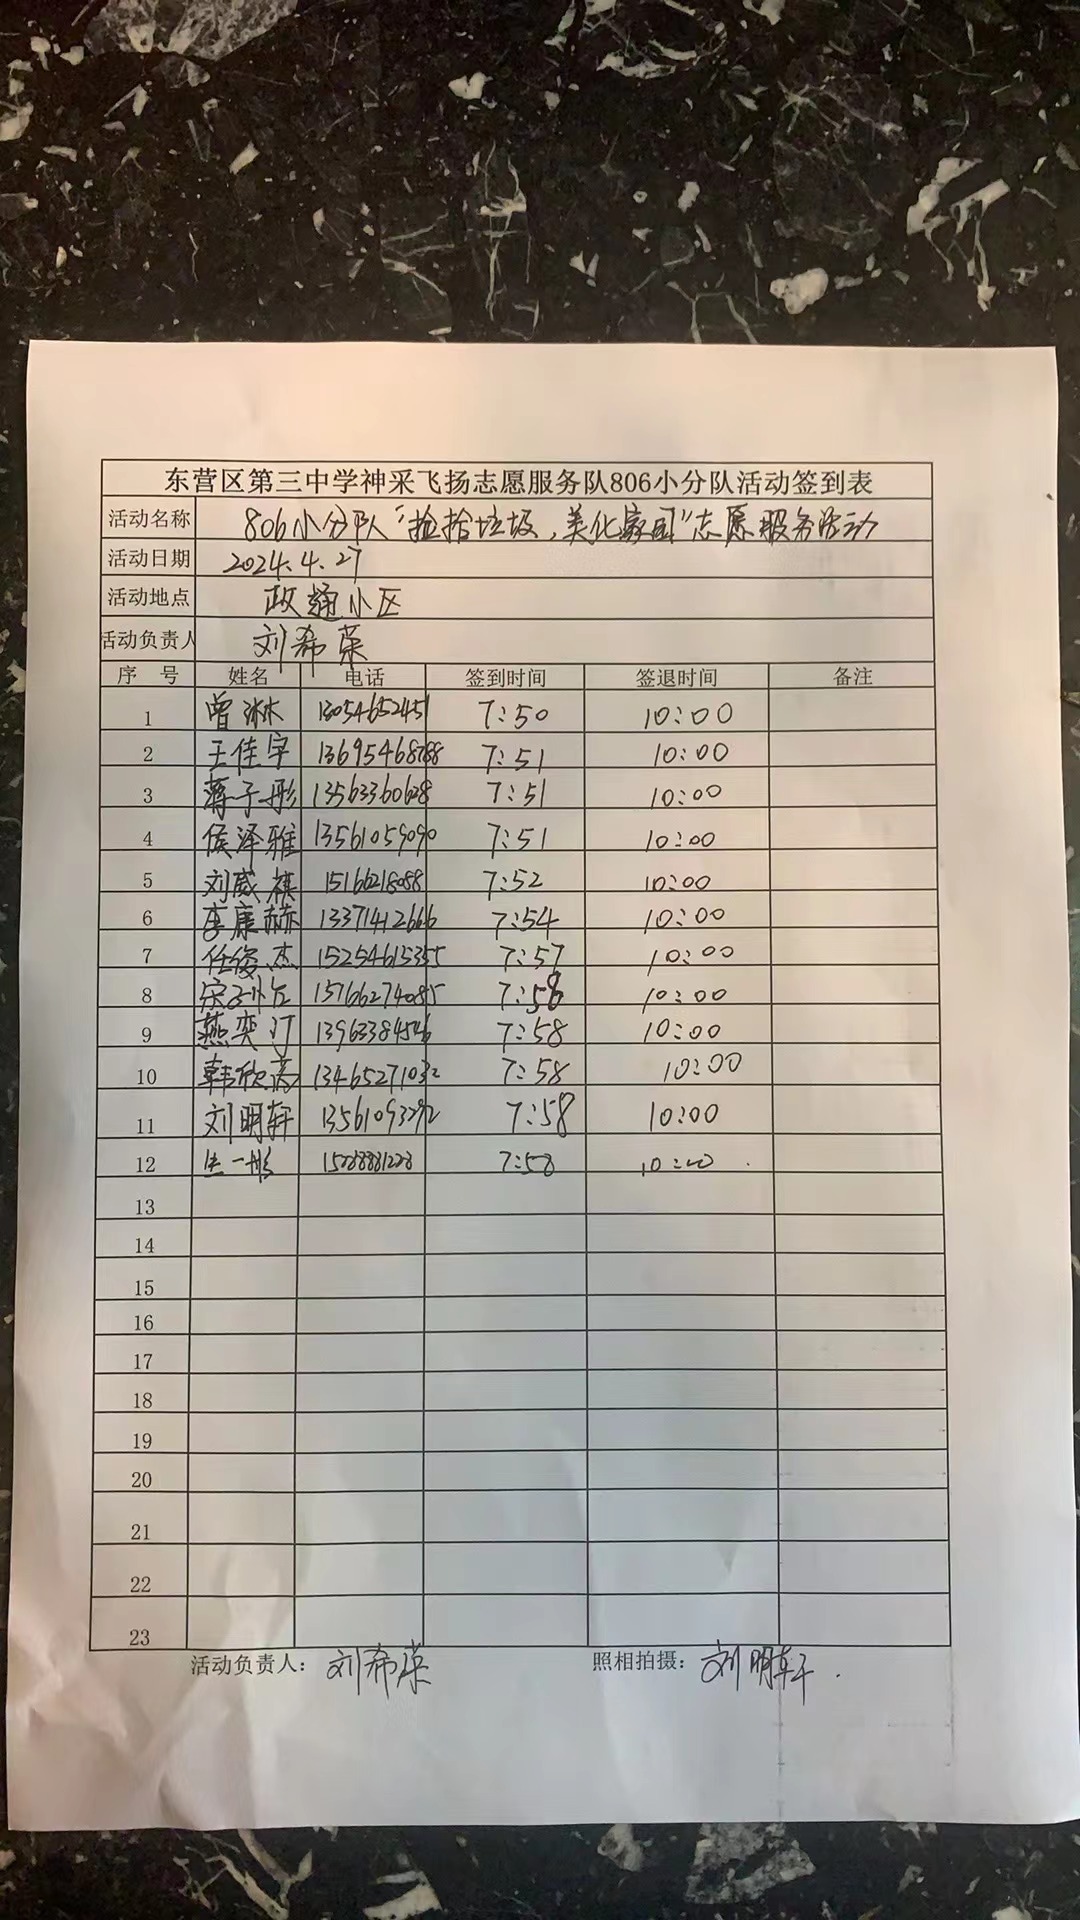 东营区第三中学神采飞扬志愿服务队806小分队活动签到表
活动名称 806小分队"捡拾垃圾，美化家园"志愿服务活动
活动日期 2024.4.27
活动地点 政通小区
活动负责人 刘希荣
序 号 姓名 电话 签到时间 签退时间 备注
1 曾淋 13054652451 7:50 10:00
2 王佳宇 13695468788 7:51 10:00
3 蒋子彤 13563360628 7:51 10:00
4 侯泽雅 13561059090 7:51 10:00
5 刘威祺 15166218088 7:52 10:00
6 李康赫 13371412666 7:54 10:00
7 任俊杰 15254615355 7:57 10:00
8 7:58 10:00
9 燕奕汀 13963384546 7:58 10:00
10 韩欣彦 13465271032 7:58 10:00
11 刘明轩 13561093292 7:58 10:00
12 7:58 10:00
13
14
15
16
17
18
19
20
21
22
23
活动负责人： 刘希荣 照相拍摄： 刘明轩